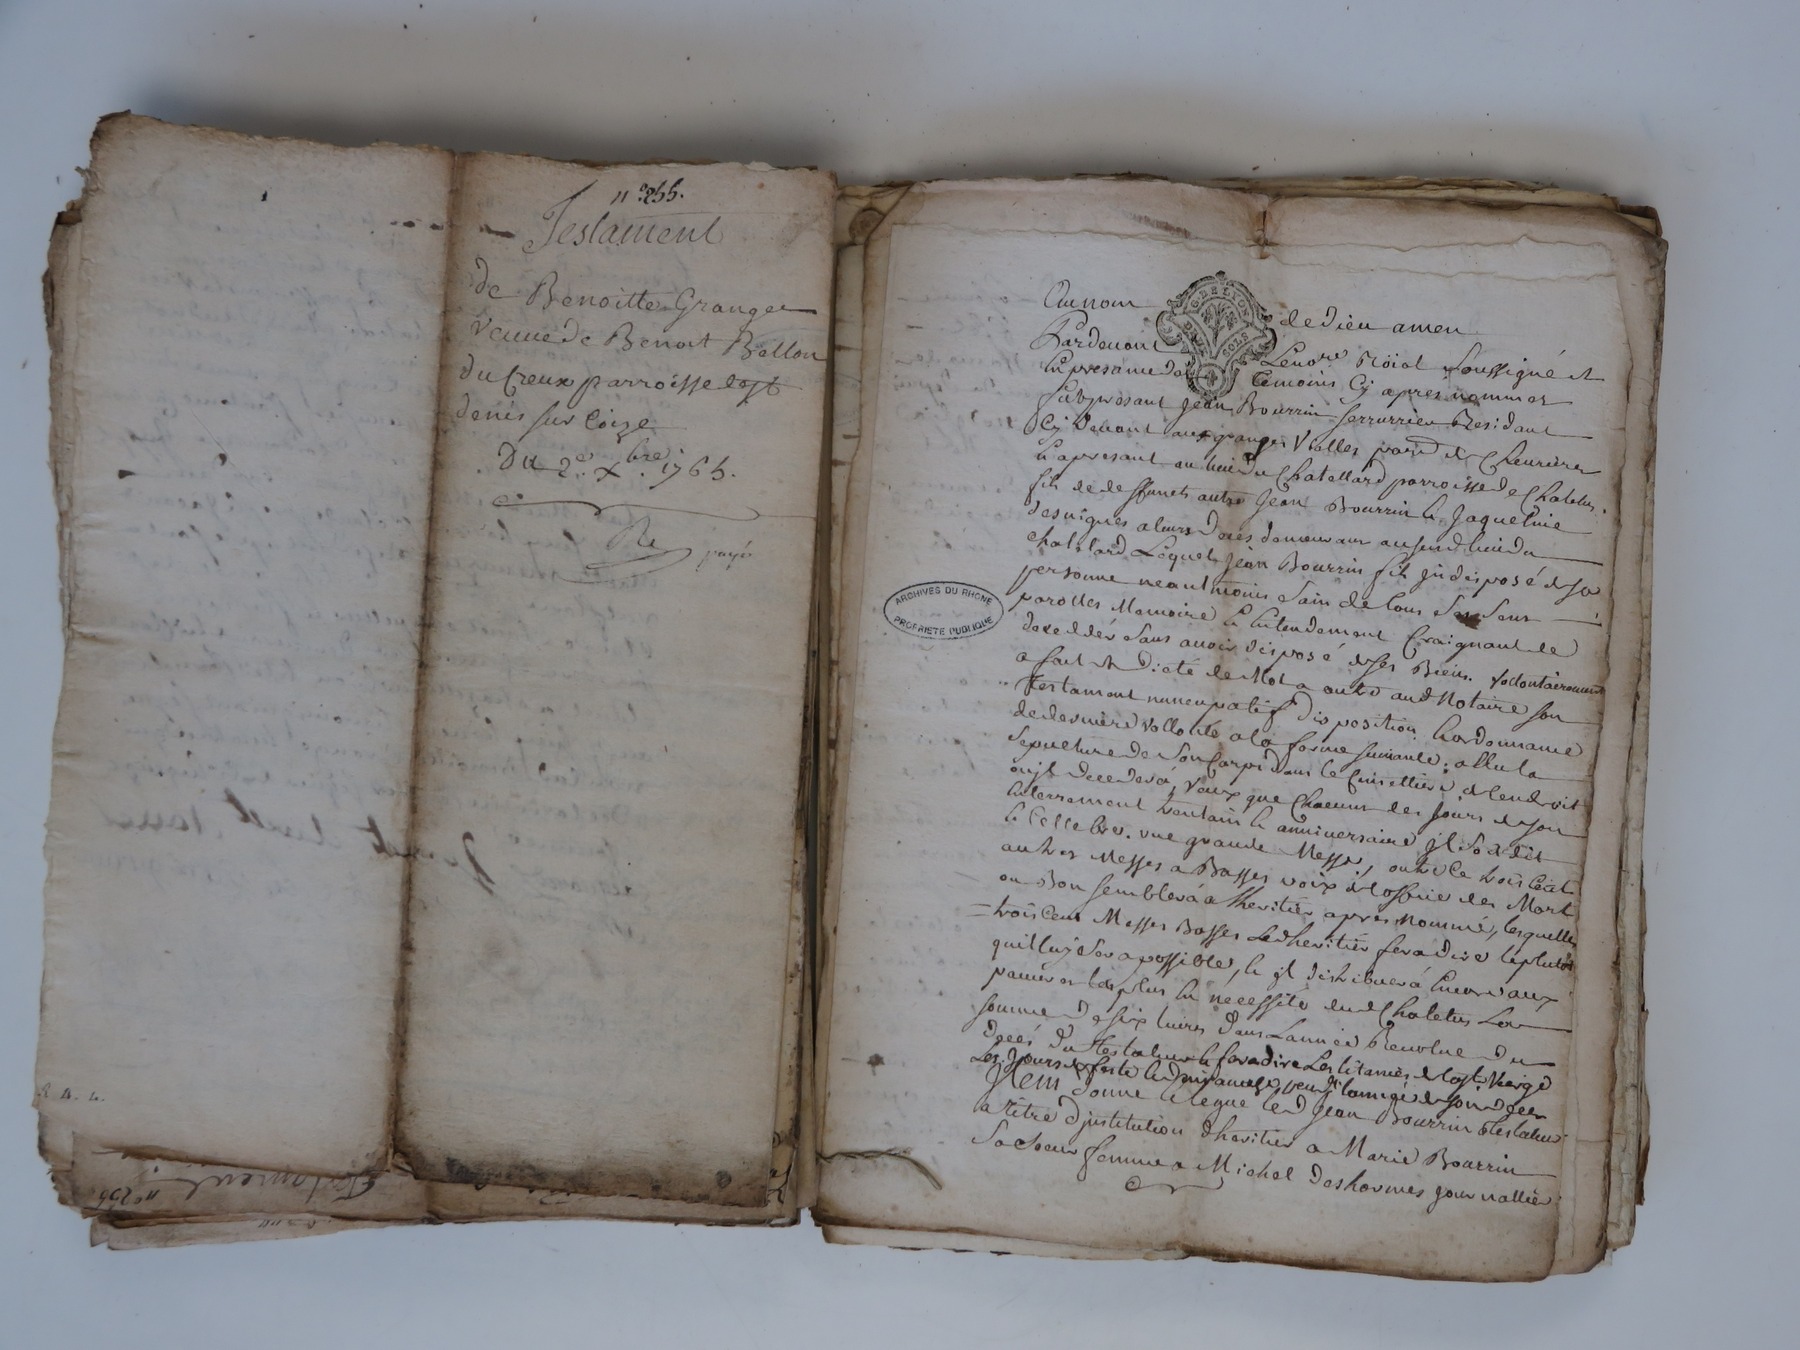 n.° 255.
Testament
de Benoitte Granger
veuve de Benoit Bellon
du Creux parroisse de st
denis sur Coize
Du 2.e Xbre 1765.
payé
ARCHIVES DU RHONE
PROPRIETE PUBLIQUE
G. DE LYON
DEUX SOLS
Au nom de dieu amen
Pardevant Le nore Roial soussigné et
En presance des temoins cy apres nommes
fut presant Jean Bourrin serrurrier Residant
cy devant aux granges Vialles parr. de Chevrieres
et apresant au lieu du Chatellard parroisse de Chatelus
fils de deffunts autre Jean Bourrin et Jaquelmie
desvignes a leurs deces demeurans audit lieu du
chatelard Lequel Jean Bourrin fils jndisposé de sa
personne neantmoins sain de tous ses sens
parolles Memoire et Entendement Craignant de
deceder sans avoir disposé de ses Biens. vollontairement
a fait et dicté de Mot a autre aud Notaire son
testament nuncupatif disposition et ordonnance
de derniere vollonté a la forme suivante; a Elu la
sepulture de son Corps dans le Cimettiere de lendroit
ou jl decedera, Veux que Chacun des jours de son
Enterrement trentain et anniversaire jl soit dit
et Cellebré une grande Messe, outre ce trois Cent
autres Messes a Basses voix de loffice des Mort
ou Bon semblera a lheritier apres Nommé, lesquelles
trois Cent Messes Basses Led heritier fera dire le plutot
quil luy sera possible, et jl distribuera Encore aux
pauvres les plus En necessité dud Chatelus La
somme de six livres dans Lannée Revolue du
deces du testateur et fera dire Les litanies de la ste Vierge
Les jours de feste et dimanche pendt lannée de son deces
Jtem donne et legue led Jean Bourrin testateur
a titre djnstitution dheritier a Marie Bourrin
sa soeur femme a Michel deshormes journallier
Testament
n.° 256